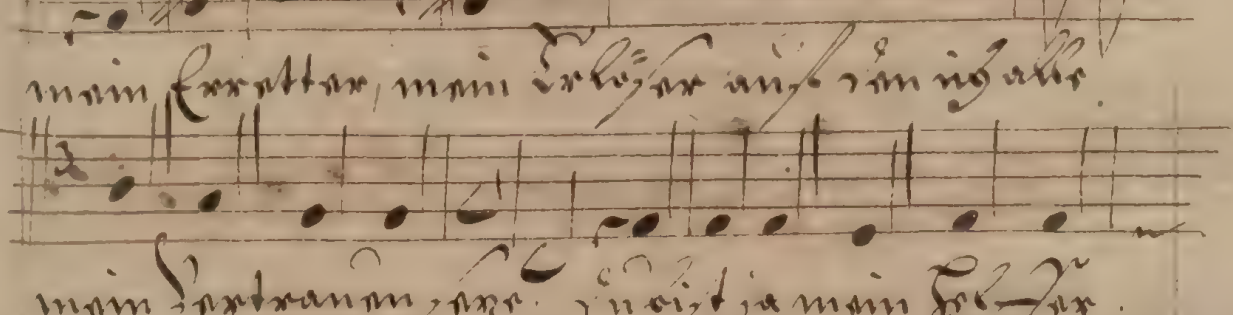 mein Erretter, mein Erlößer auf den ich alle
mein Vertrauen seze. Du bist ja mein Helfer.